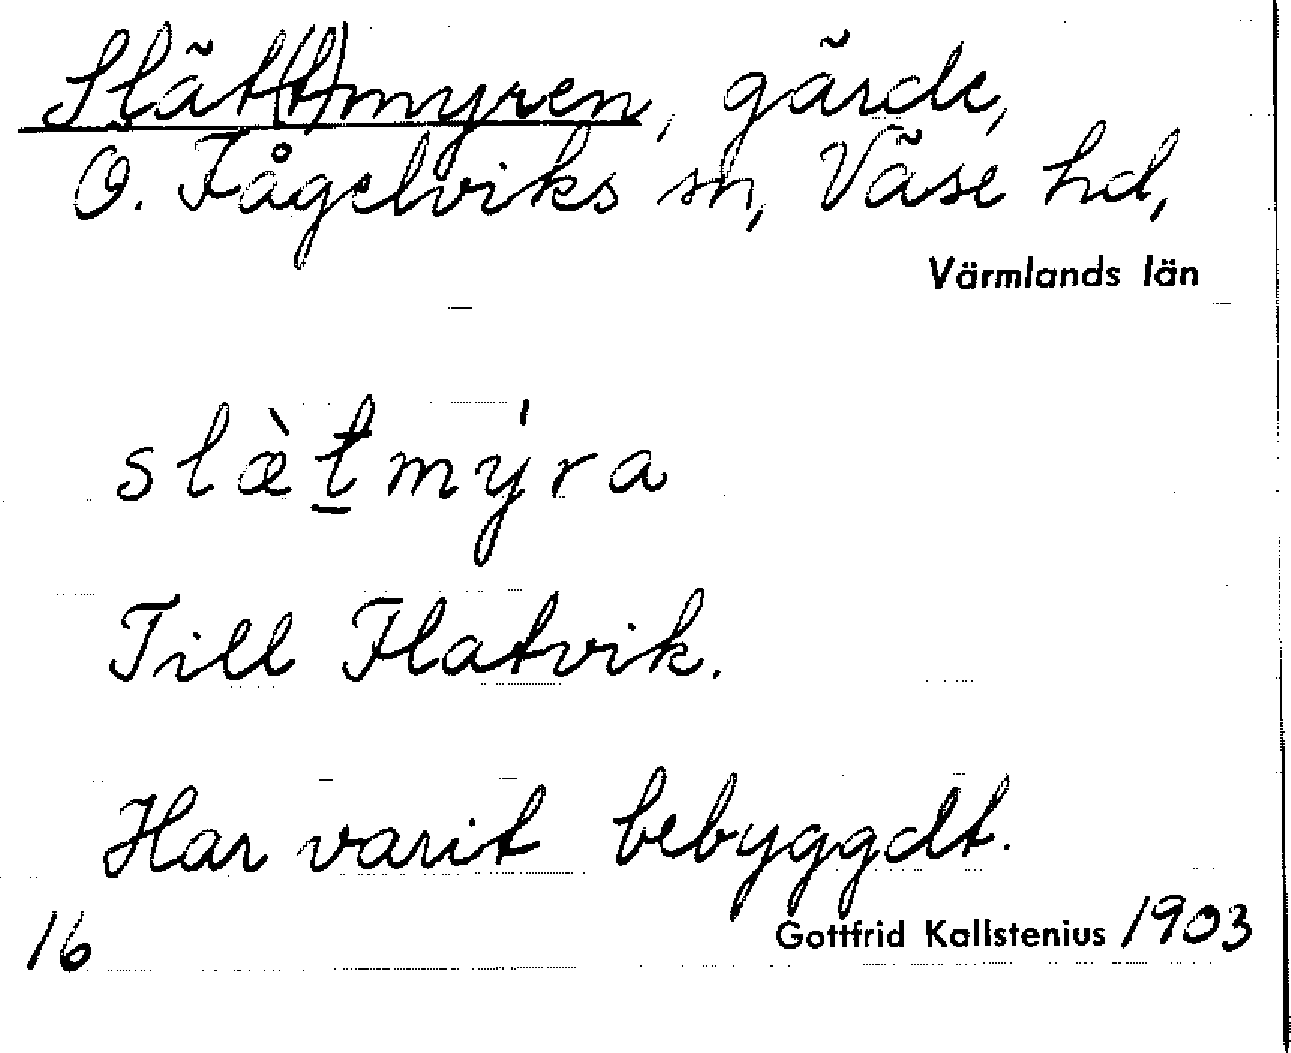 Slät(t)myren, gärde,
O. Fågelviks sn, Väse hd,
Värmlands län
slæ̀t̠mýra
Till Flatvik.
Har varit bebyggdt.
16
Gottfrid Kallstenius 1903